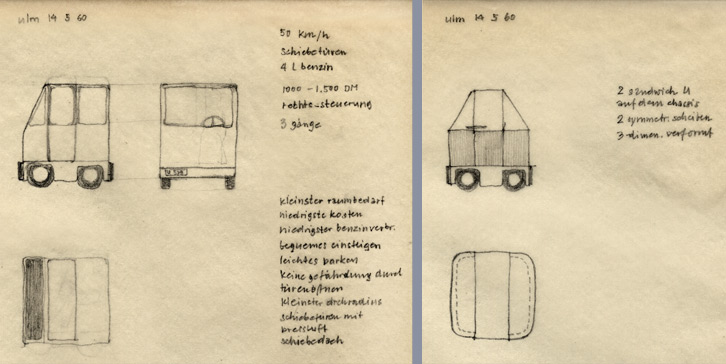 ulm 14 5 60
50 Km/h
schiebetüren
4 l benzin
1000 - 1.500 DM
rechts-steuerung
3 gänge
kleinster raumbedarf
niedrigste kosten
niedrigster benzinverbr.
bequemes einsteigen
leichtes parken
keine gefährdung durch
türenöffnen
kleinster drehradius
schiebetüren mit
pressluft
schiebedach
ulm 14 5 60
2 sandwich U
auf dem chassis
2 symmetr. scheiben
3-dimen. verformt